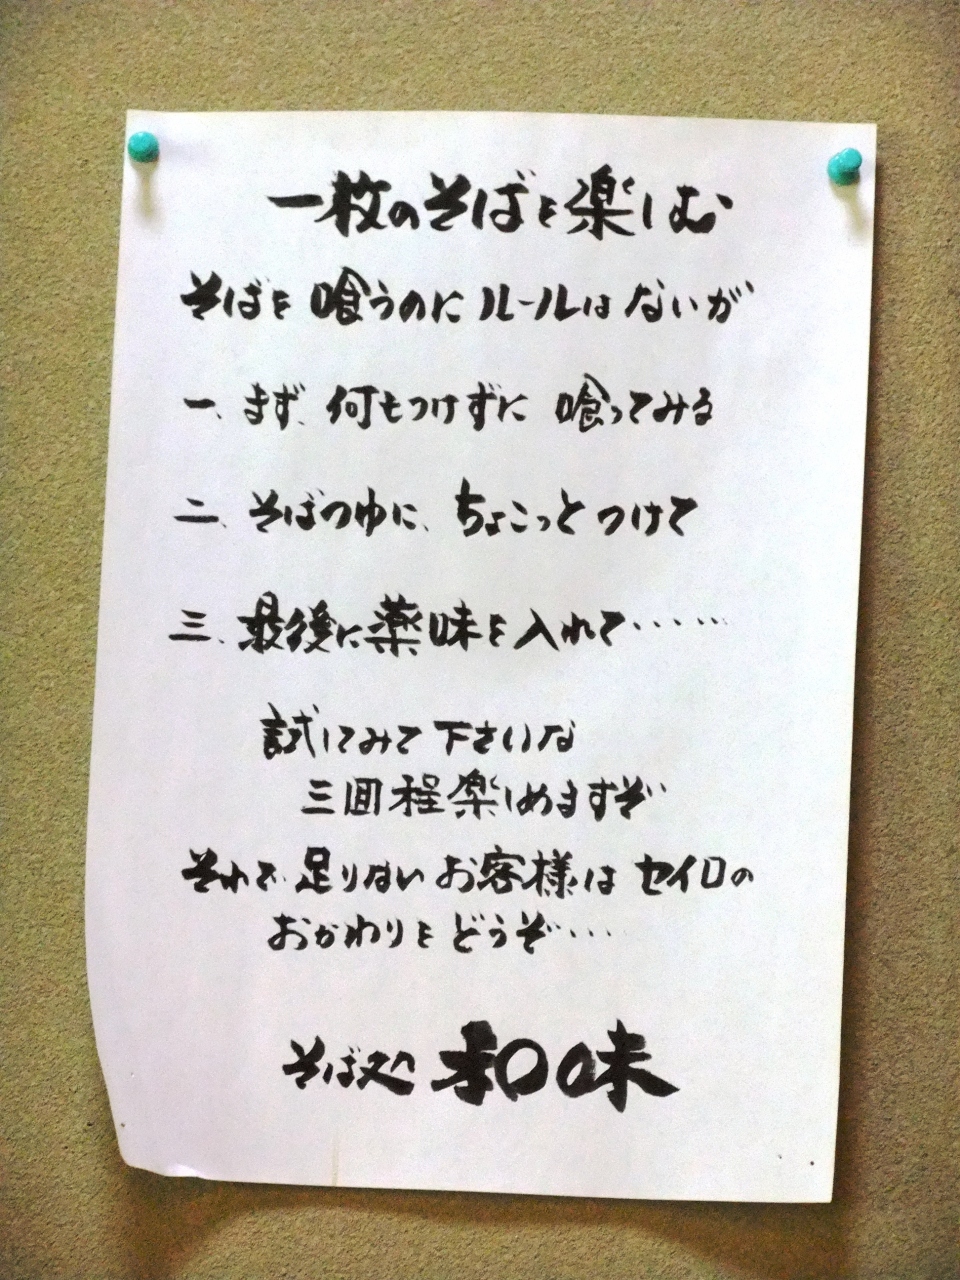 一枚のそばを楽しむ
そばを喰うのにルールはないが
一、まず、何もつけずに喰ってみる
二、そばつゆに、ちょこっとつけて
三、最後に薬味を入れて‥‥‥
試してみて下さいな
三回程楽しめますぞ
それで足りないお客様はセイロの
おかわりをどうぞ‥‥
そば処 和味